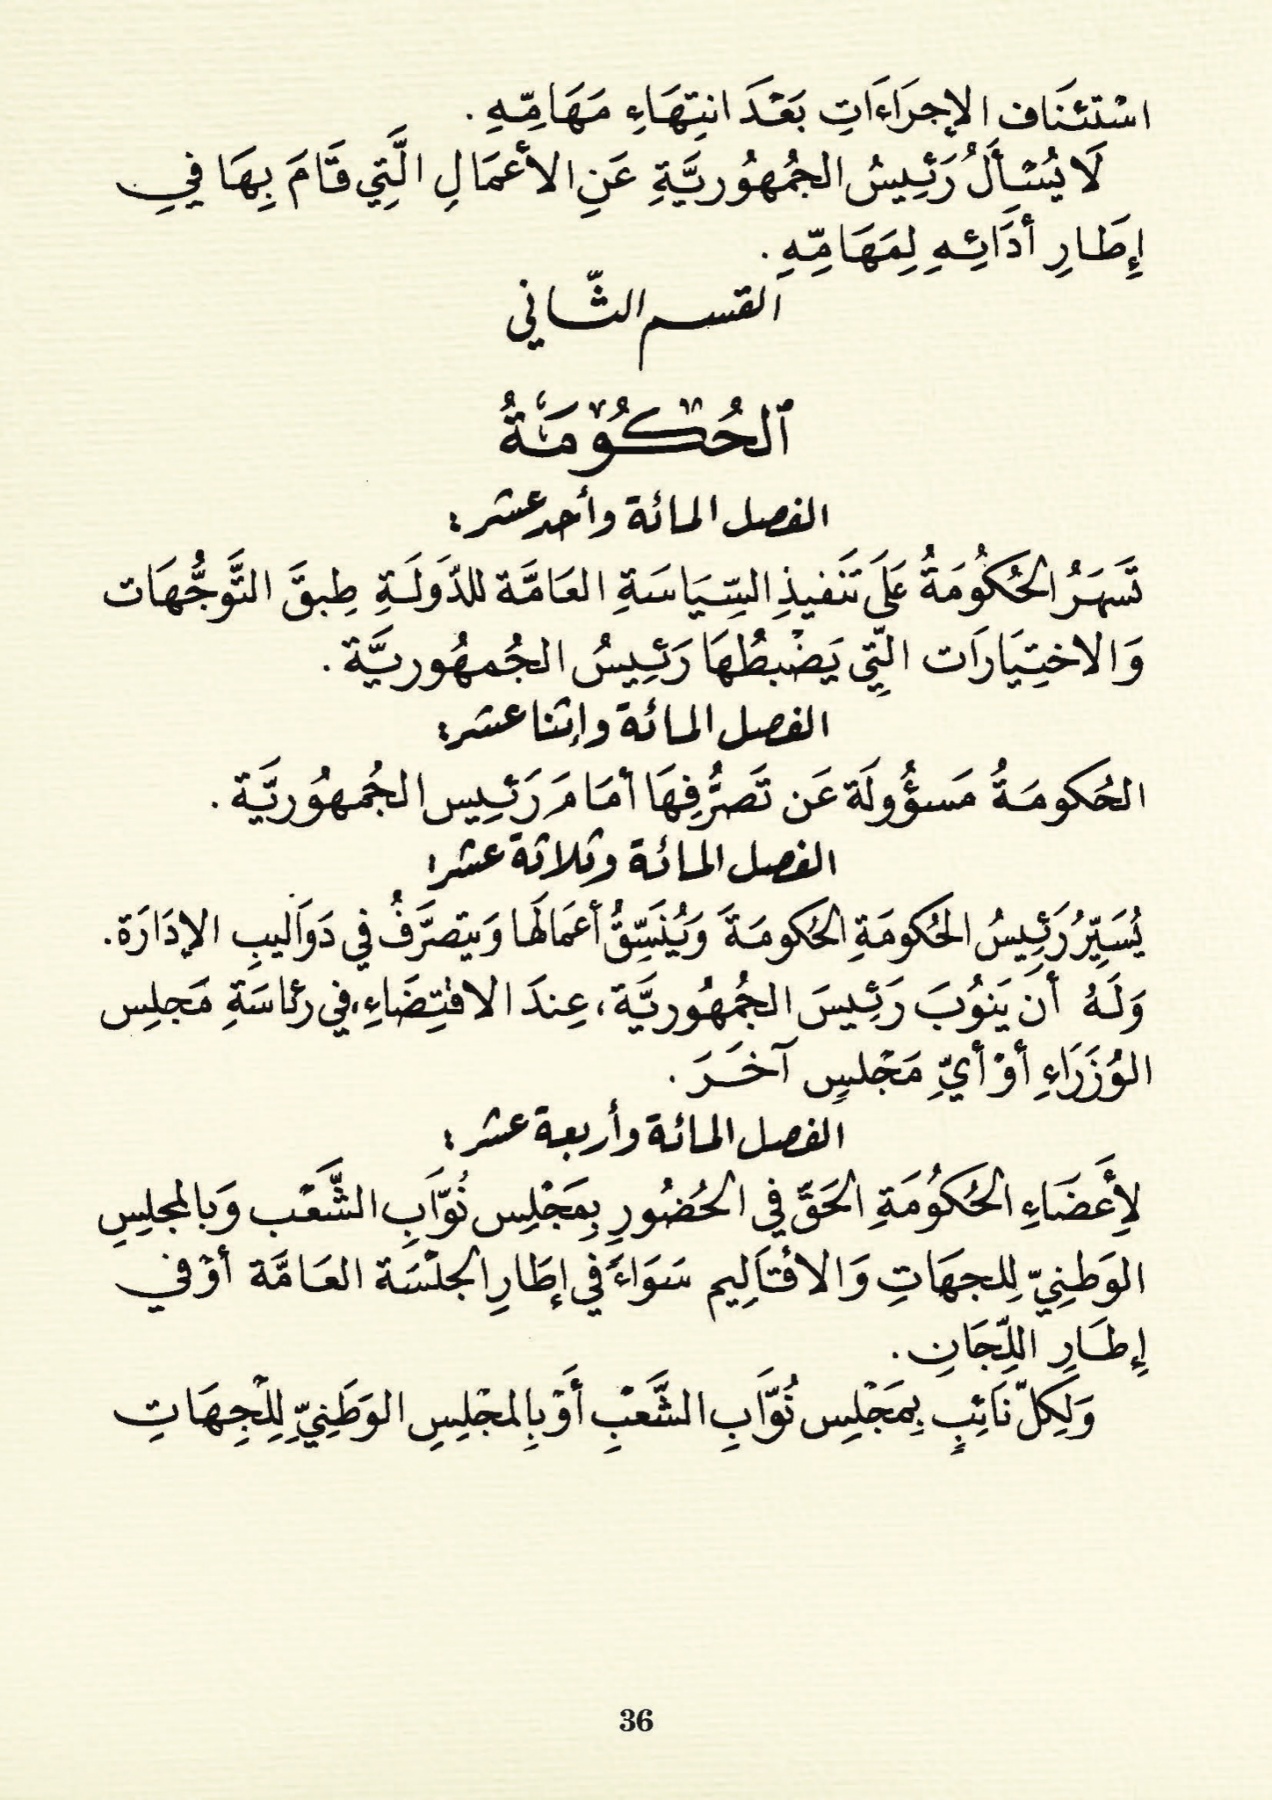 اسْتئنَاف الإجرَاءَاتِ بَعْدَ انتِهَاءِ مَهَامِّهِ .
لَا يُسْأَلُ رَئِيسُ الجُمهُوريَّةِ عَنِ الأعمَالِ الَّتِي قَامَ بِهَا فِي
إِطَارِ أدَائِهِ لِمَهَامِّهِ .
القسم الثّاني
ٱلحُكُومَةُ
الفصل المائة وأحد عشر :
تَسهَرُ الحُكُومَةُ عَلَى تَنفيذِ السِّيَاسَةِ العَامَّة للدّولَةِ طِبقَ التَّوَجُّهَات
وَالاختِيَارَات الّتِي يَضْبطُهَا رَئِيسُ الجُمهُوريَّة .
الفصل المائة وإثنا عشر :
الحُكومَةُ مَسؤُولَة عَن تَصَرُّفِهَا أمَامَ رَئِيس الجُمهُوريَّة .
الفصل المائة وثلاثة عشر :
يُسَيِّرُ رَئِيسُ الحُكومَةِ الحُكومَةَ وَيُنَسِّقُ أعمَالَها وَيتصرَّفُ في دَوَاليبِ الإدَارَة .
وَلَهُ أن يَنوُبَ رَئِيسَ الجُمهُوريَّة ، عِندَ الاقتِضَاءِ، في رئاسَةِ مَجلِس
الوُزَرَاءِ أوْ أيِّ مَجْلسٍ آخَرَ .
الفصل المائة وأربعة عشر :
لأِعَضَاءِ الحُكُومَةِ الحَقّ في الحُضُورِ بِمَجْلِس نُوَّابِ الشَّعْب وَبالمجلِسِ
الوَطنِيّ لِلجهَاتِ وَالاقْتَاَلِيم سَوَاءً في إطَارِ الجلْسَة العَامَّة أوْ في
إِطَارِ اللِّجَانِ .
وَلِكلّ نَائِبٍ بِمَجْلِس نُوَّابِ الشَّعْبِ أَوْ بِالمجْلِسِ الوَطَنِيِّ لِلْجِهَاتِ
36